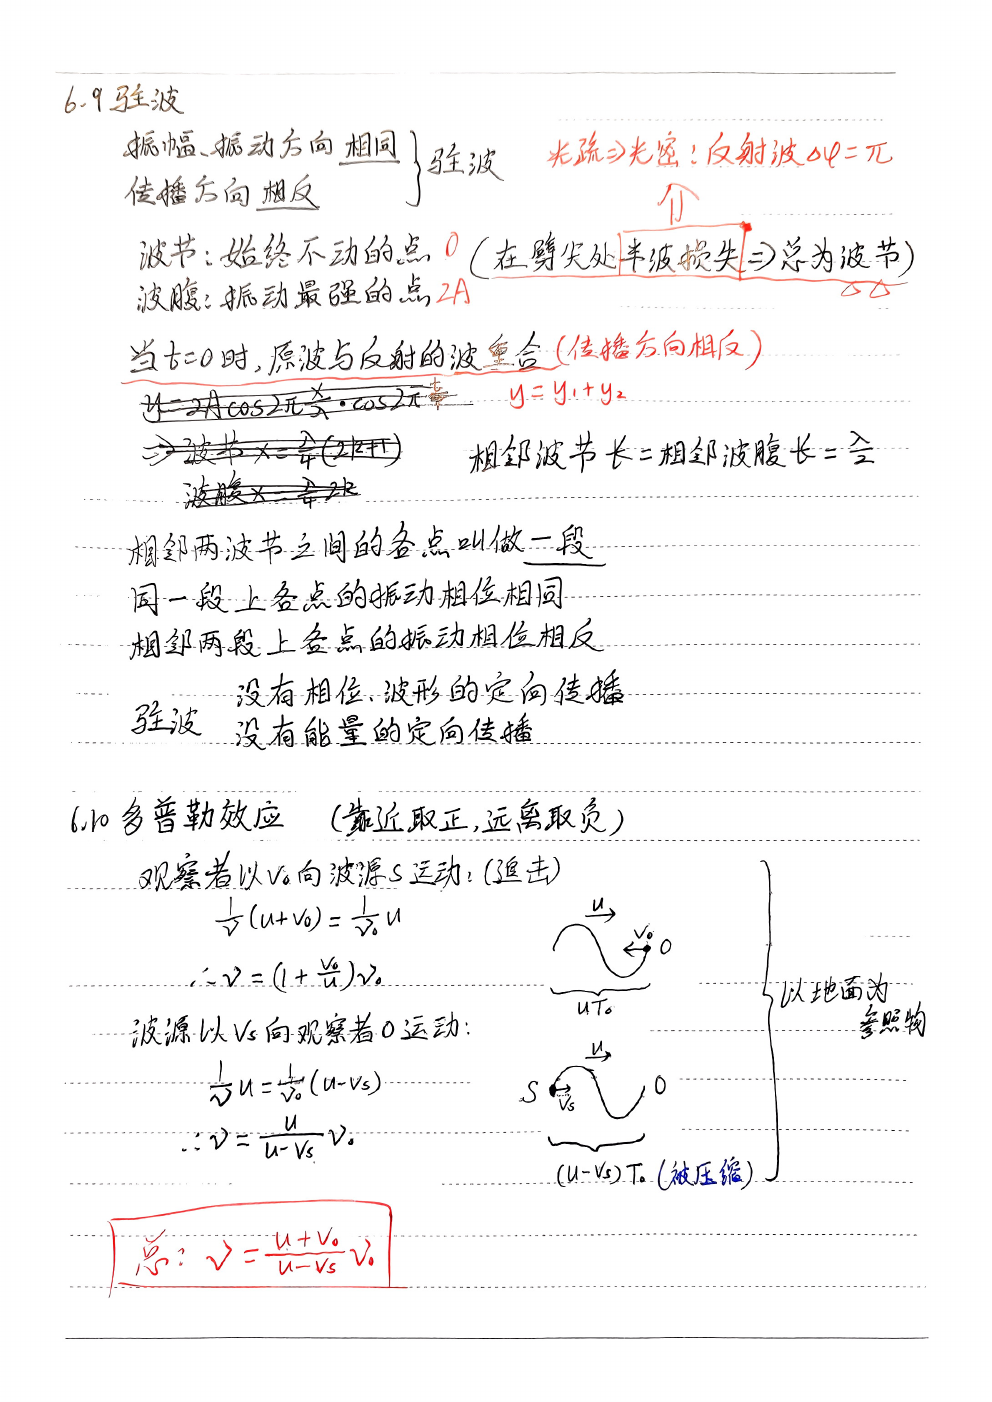 6.9 驻波
振幅、振动方向 相同
传播方向 相反
} 驻波
光疏⇒光密：反射波Δφ=π
⇑
波节：始终不动的点 0 (在劈尖处半波损失⇒总为波节)
波腹：振动最强的点 2A
△△
当t=0时，原波与反射的波重合 (传播方向相反)
y=2Acos2π x/λ · cos2π
y = y₁ + y₂
⇒波节 x = λ/4 (2k+1)
相邻波节长=相邻波腹长= λ/2
波腹 x = λ/4 2k
相邻两波节之间的各点叫做一段
同一段上各点的振动相位相同
相邻两段上各点的振动相位相反
驻波
没有相位、波形的定向传播
没有能量的定向传播
6.10 多普勒效应 (靠近取正，远离取负)
观察者以V₀向波源S运动：(追击)
1/ν (u+V₀) = 1/ν₀ u
∴ ν = (1 + V₀/u) ν₀
u
V₀ O
uT₀
波源以Vs向观察者O运动：
1/ν u = 1/ν₀ (u-Vs)
∴ ν = u/(u-Vs) ν₀
u
S Vs O
(u-Vs)T₀ (被压缩)
} 以地面为
参照物
总：ν = (u+V₀)/(u-Vs) ν₀